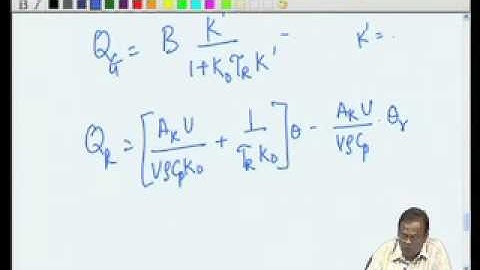 Q_G = B K' / (1 + K_0 τ_R K') -   K' = .
Q_R = [A_K U / (VρC_p K_0) + 1 / (τ_R K_0)] θ - A_K U / (VρC_p) · θ_r